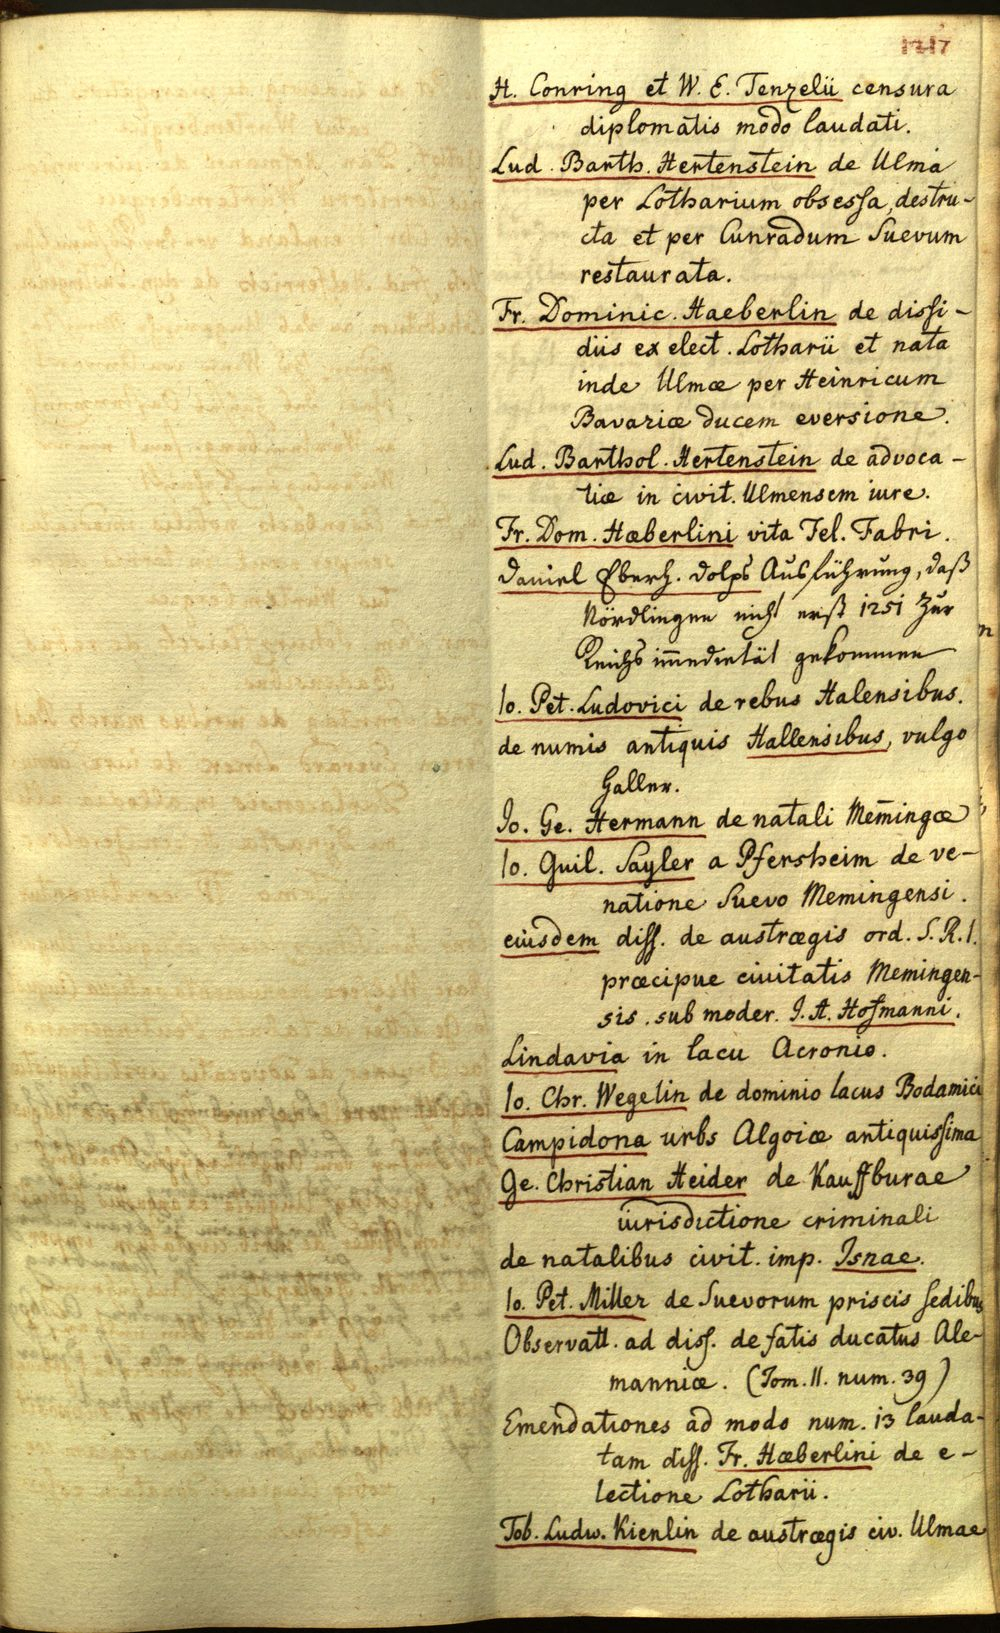 1217
H. Conring et W. E. Tenzelii censura
diplomatis modo laudati.
Lud. Barth. Hertenstein de Ulma
per Lotharium obsessa, destru-
cta et per Cunradum Suevum
restaurata.
Fr. Dominic. Haeberlin de dissi-
diis ex elect. Lotharii et nata
inde Ulmæ per Heinricum
Bavariæ ducem eversione.
Lud. Barthol. Hertenstein de advoca-
tiæ in civit. Ulmensem iure.
Fr. Dom. Hæberlini vita Fel. Fabri.
Daniel Eberh. Dolps Ausführung, daß
Nördlingen nicht erst 1251 zur
Reichs im̄edietät gekommen
Io. Pet. Ludovici de rebus Halensibus.
de numis antiquis Hallensibus, vulgo
Haller.
Jo. Ge. Hermann de natali Mem̄ingæ
Io. Guil. Sayler a Pfersheim de ve-
natione Suevo Memingensi.
eiusdem diss. de austrægis ord. S. R. I.
præcipue civitatis Memingen-
sis. sub moder. I. A. Hofmanni.
Lindavia in lacu Acronio.
Io. Chr. Wegelin de dominio lacus Bodamici
Campidona urbs Algoiæ antiquissima
Ge. Christian Heider de Kauffburae
iurisdictione criminali
de natalibus civit. imp. Isnae.
Io. Pet. Miller de Suevorum priscis sedibus
Observatt. ad diss. de fatis ducatus Ale-
manniæ. (Tom. II. num. 39)
Emendationes ad modo num. 13 lauda-
tam diss. Fr. Hæberlini de e-
lectione Lotharii.
Tob. Ludw. Kienlin de austrægis civ. Ulmae